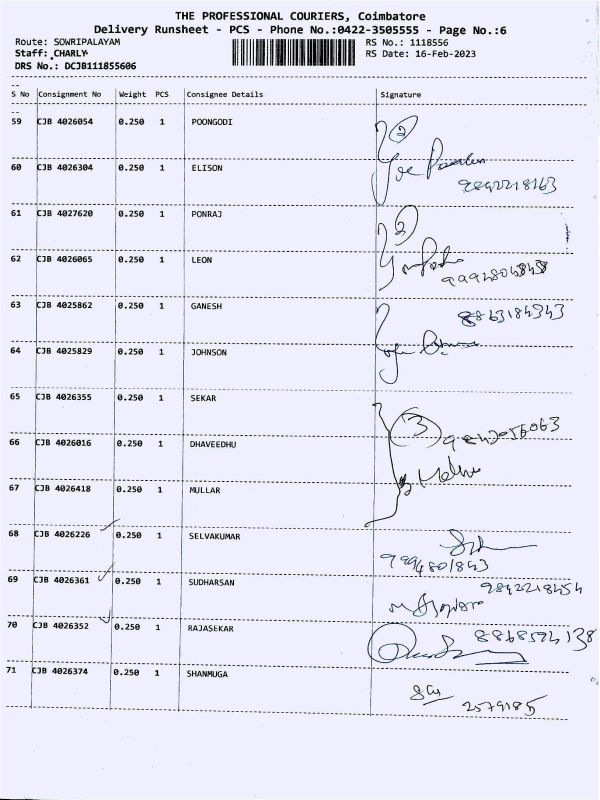 THE PROFESSIONAL COURIERS, Coimbatore
Delivery Runsheet - PCS - Phone No.:0422-3505555 - Page No.:6
Route: SOWRIPALAYAM RS No.: 1118556
Staff: CHARLY RS Date: 16-Feb-2023
DRS No.: DCJB111855606
S No Consignment No Weight PCS Consignee Details Signature
59 CJB 4026054 0.250 1 POONGODI
2
60 CJB 4026304 0.250 1 ELISON
9892218163
61 CJB 4027620 0.250 1 PONRAJ
2
62 CJB 4026065 0.250 1 LEON
63 CJB 4025862 0.250 1 GANESH
8863184343
64 CJB 4025829 0.250 1 JOHNSON
65 CJB 4026355 0.250 1 SEKAR
3
9843056063
66 CJB 4026016 0.250 1 DHAVEEDHU
67 CJB 4026418 0.250 1 MULLAR
68 CJB 4026226 0.250 1 SELVAKUMAR
9994801843
69 CJB 4026361 0.250 1 SUDHARSAN
9842218454
70 CJB 4026352 0.250 1 RAJASEKAR
8868594138
71 CJB 4026374 0.250 1 SHANMUGA
2579185